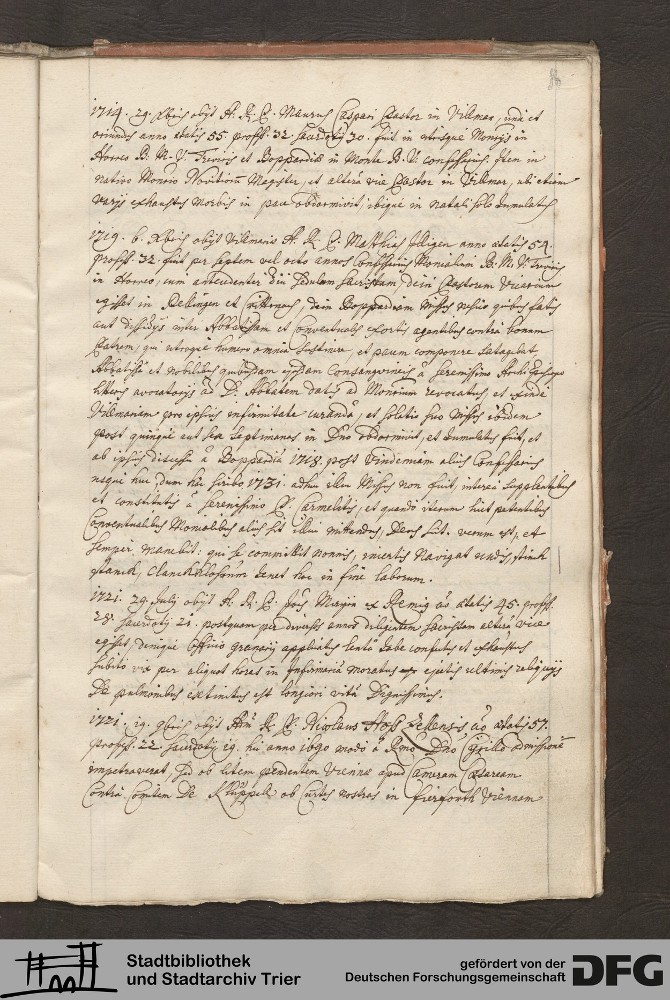 1714. 29. Xbris obijt A. R. P. Maurus Caspari Pastor in Villmar, unde et
oriundus anno aetatis 55. profess. 32. sacerdotij 30. fuit in utrisque Monrijs in
Horreo B. M. V. Treviris et Boppardiae in Monte B. V. confessarius. Item in
nativo Monrio Novitiorum Magister, et altera vice Pastor in Villmar, ubi etiam
varijs exhaustus morbis in pace obdormivit, ibique in natali solo tumulatus
1719. 6. Xbris obijt Vilmariae A. R. P. Matthias Seligen anno aetatis 54.
profess. 32. fuit per septem vel octo annos Confessarius Monialium B. M. V. Treviris
in Horreo, cum antecedenter diu sedulum sacristam, dein Pastorem Vicarium
egisset in et dein Boppardiam missus nescio quibus fatis
aut dissidijs inter Abbatissam et Conventuales exortis agentibus contra bonum
Patrem, qui utroque humero omnia sustinere, et pacem componere satagebat
Abbatissae et nobilibus quibusdam eiusdem consanguineis a serenissimo Archi Episcopo
litteris avocatorijs ad D. Abbatem datis ad Monrium revocatus, et exinde
Vilmariam pro ipsius infirmitate curanda, et solatio suo missus ibidem
post quinque aut sex septimanas in Dno obdormivit, et tumulatus fuit, et
ab ipsius discessu a Boppardia 1718. post vindemiam alius Confessarius
usque huc, dum haec scribo 1731. adhuc illuc missus non fuit, interea supplentibus
et constitutis a serenissimo PP. Carmelitis, et quando iterum huic petentibus
Conventualibus Monialibus alius sit illuc mittendus, Deus scit. verum est, et
semper manebit: qui se committit nonnis, incertis navigat undis,
habet hoc in fine laborum.
1721. 29. Julij obijt A. R. P. Joës Mayin ex Remig ao aetatis 45. profess.
28. sacerdotij 21. postquam per diversos annos diligentem sacristam altera vice
egisset denique officio granarij applicatus lenta tabe confectus et exhaustus
subito vix per aliquot horas in infirmaria moratus ejectis ultimis reliquijs
de pulmonibus extinctus est longiori vita dignissimus.
1721. 19. 9bris obijt Adm R. P. Nicolaus Hass Zellensis ao aetatis 57.
profess. 22. sacerdotij 29. hic anno modo a Rmo Dno Cyrillo admissionem
impetraverat, sed ob litem pendentem Viennae apud Cameram Caesaream
Contra Comitem De Klüppel ob Curtes nostras in Viennam
Stadtbibliothek
und Stadtarchiv Trier
gefördert von der
Deutschen Forschungsgemeinschaft
DFG